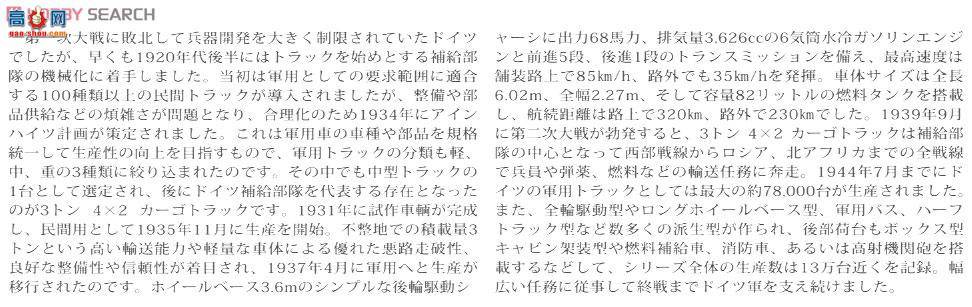 HOBBY SEARCH
第一次大戦に敗北して兵器開発を大きく制限されていたドイツ
でしたが、早くも1920年代後半にはトラックを始めとする補給部
隊の機械化に着手しました。当初は軍用としての要求範囲に適合
する100種類以上の民間トラックが導入されましたが、整備や部
品供給などの煩雑さが問題となり、合理化のため1934年にアイン
ハイツ計画が策定されました。これは軍用車の車種や部品を規格
統一して生産性の向上を目指すもので、軍用トラックの分類も軽、
中、重の3種類に絞り込まれたのです。その中でも中型トラックの
1台として選定され、後にドイツ補給部隊を代表する存在となった
のが3トン 4×2 カーゴトラックです。1931年に試作車輌が完成
し、民間用として1935年11月に生産を開始。不整地での積載量3
トンという高い輸送能力や軽量な車体による優れた悪路走破性、
良好な整備性や信頼性が着目され、1937年4月に軍用へと生産が
移行されたのです。ホイールベース3.6mのシンプルな後輪駆動シ
ャーシに出力68馬力、排気量3.626ccの6気筒水冷ガソリンエンジ
ンと前進5段、後進1段のトランスミッションを備え、最高速度は
舗装路上で85km/h、路外でも35km/hを発揮。車体サイズは全長
6.02m、全幅2.27m、そして容量82リットルの燃料タンクを搭載
し、航続距離は路上で320km、路外で230kmでした。1939年9月
に第二次大戦が勃発すると、3トン 4×2 カーゴトラックは補給部
隊の中心となって西部戦線からロシア、北アフリカまでの全戦線
で兵員や弾薬、燃料などの輸送任務に奔走。1944年7月までにド
イツの軍用トラックとしては最大の約78.000台が生産されました。
また、全輪駆動型やロングホイールベース型、軍用バス、ハーフ
トラック型など数多くの派生型が作られ、後部荷台もボックス型
キャビン架装型や燃料補給車、消防車、あるいは高射機関砲を搭
載するなどして、シリーズ全体の生産数は13万台近くを記録。幅
広い任務に従事して終戦までドイツ軍を支え続けました。